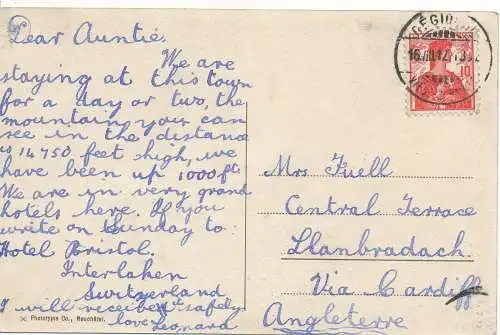 Dear Auntie.
We are
staying at this town
for a day or two, the
mountain you can
see in the distance
is 14750 feet high, we
have been up 1000 ft.
We are in very grand
hotels here. If you
write on Sunday to
Hotel Bristol.
Interlaken
Switzerland
I will receive it safely
love Leonard
Phototypie Co., Neuchâtel.
16.
12
10
Mrs Fuell
Central Terrace
Llanbradach.
Via Cardiff
Angleterre